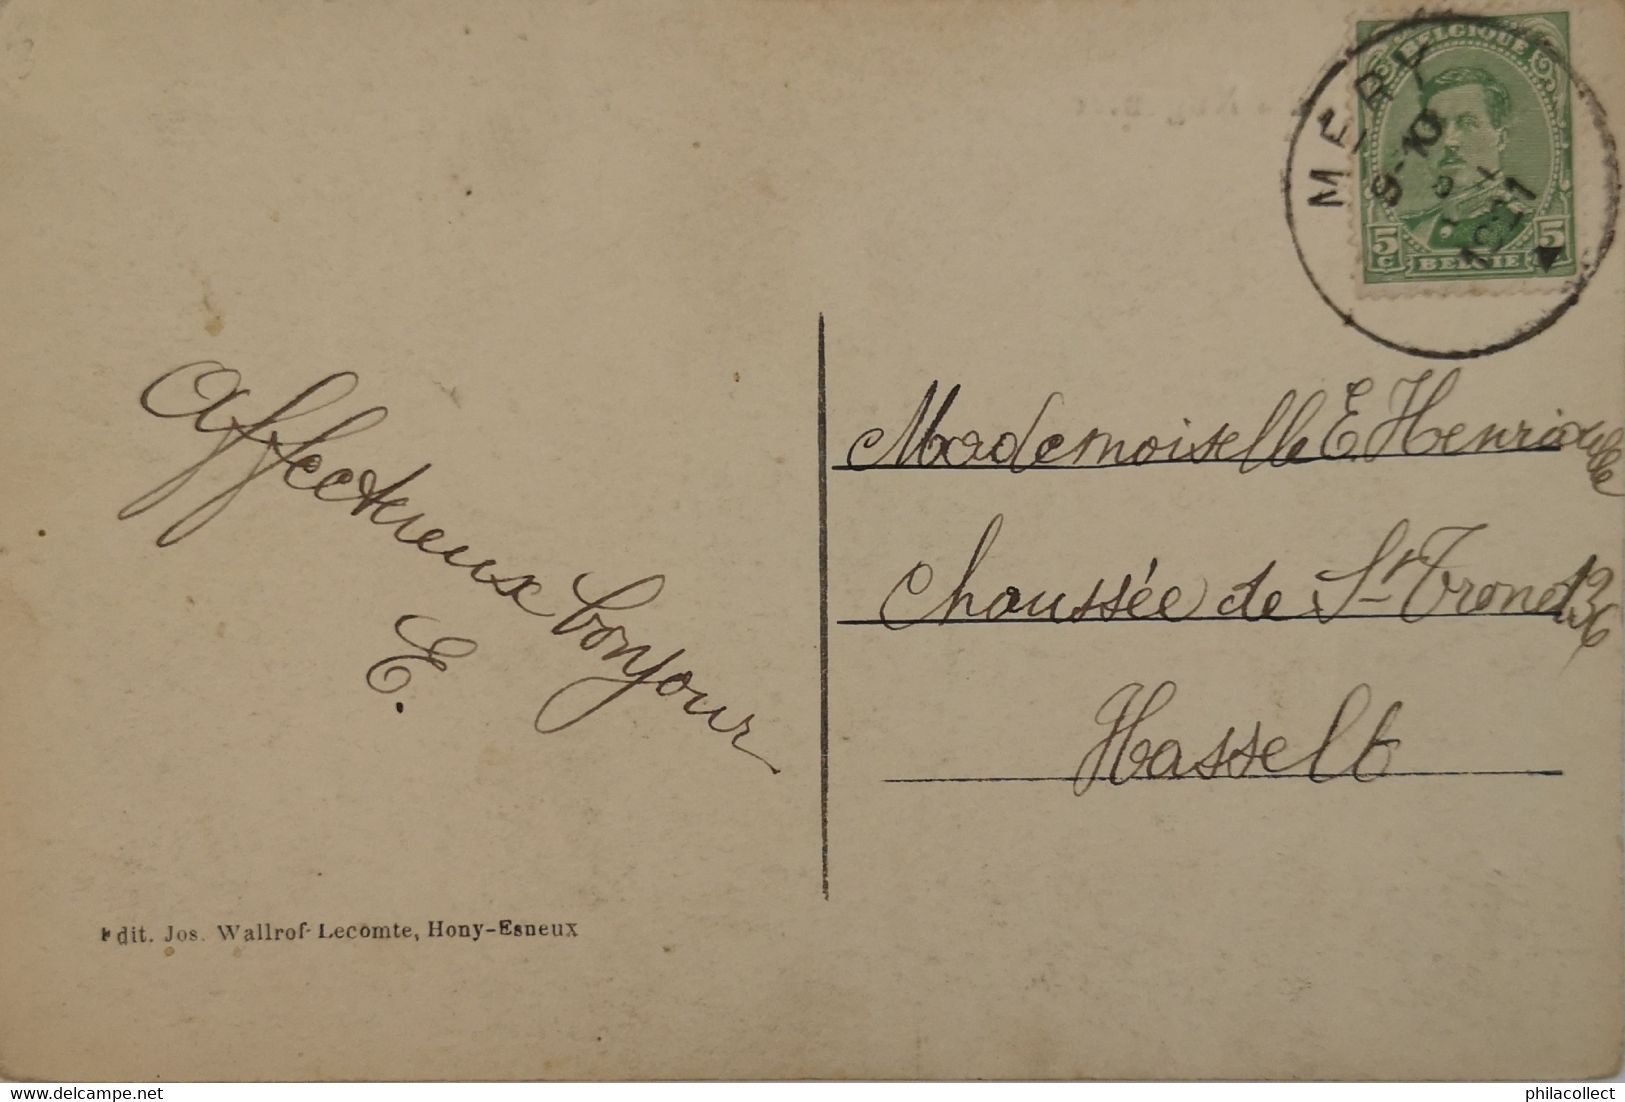 BELGIQUE
MERY
9-10
8
1921
5c
5c
BELGIE
Affectueux bonjour
E.
Mademoiselle E. Henrioulle
Chaussée de St Trond 136
Hasselt
Edit. Jos. Wallrof-Lecomte, Hony-Esneux
www.delcampe.net
philacollect